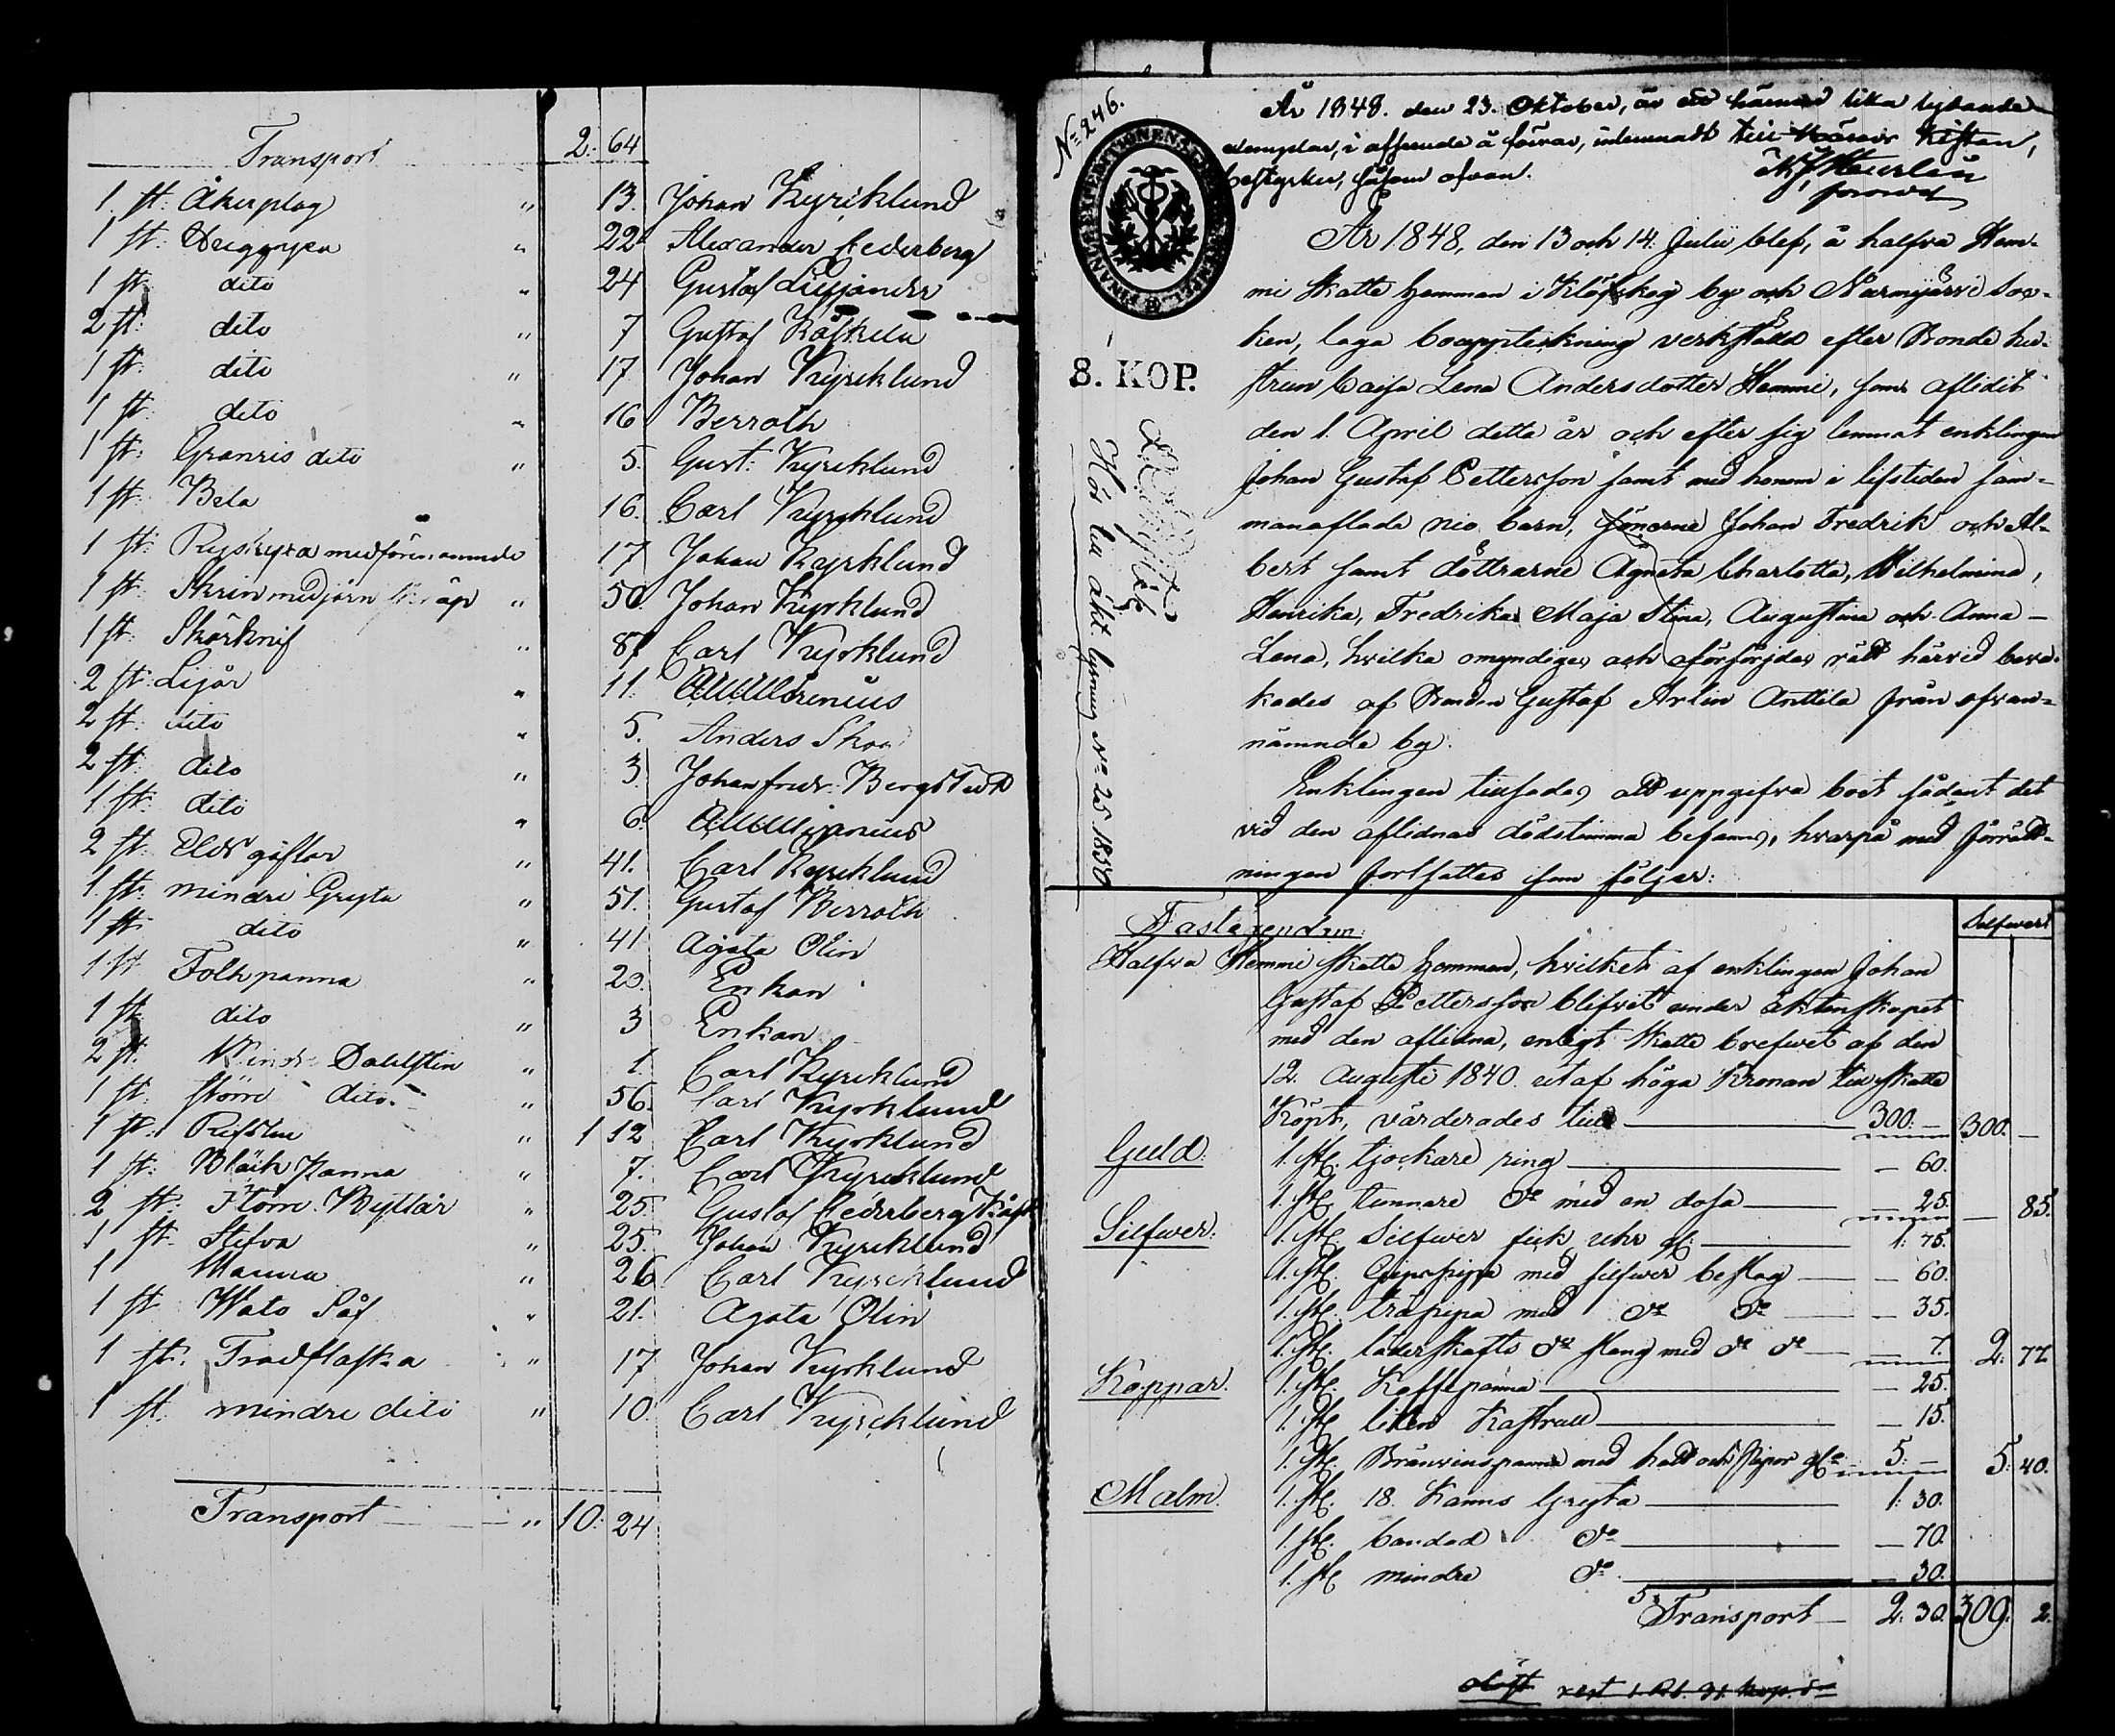 Transport 2: 64
1. st: Åkerplog " 13. Johan Kyrcklund
1 st: " 22 Alexander Cederberg
1 st: dito " 24 Gustaf Liljander
2 st: dito " 7 Gustaf
1 st: dito " 17 Johan Kyrcklund
1 st: dito " 16 Berroth
1 st: Granris dito " 5. Gust: Kyrcklund
1 st: Bela 16. Carl Kyrcklund
1 st: 17 Johan Kyrcklund
1 st: Skrin med järn " 50. Johan Kyrcklund
1 st: Skärknif " 87 Carl Kyrcklund
2 st: Lijor " 11.
2 st: dito " 5. Anders
2 st: dito " 3 Johan Fredr: Bergstedt
1 st: dito " 6.
2 st: Elds gafflar " 41. Carl Kyrcklund
1. st: mindre Gryta " 51. Gustaf Berroth
1 st dito " 41 Agata Olin
1 st Folkpanna " 20. Enkan
1 st dito " 3 Enkan
2 st: " 1. Carl Kyrcklund
1 st: större dito " 56. Carl Kyrcklund
1 st: " 1 12 Carl Kyrcklund
1 st: Bläck Kanna " 7. Carl Kyrcklund
2 st: " 25. Gustaf Cederberg
1 st. Stäfva " 25. Johan Kyrcklund
1 " 26 Carl Kyrcklund
1 st Wato Såf " 21. Agata Olin
1 st: Tradflaska " 17 Johan Kyrcklund
1 st. mindre dito " 10. Carl Kyrcklund
Transport " 10: 24
No 246.
År 1848. den 23. Oktober, är ett härmed lika lydande
exemplar, i afseende å förvar, inlemnadt till Kistan,
bestyrker, såsom ofvan.
8. KOP.
Hör till akt. lysning No 25 1850
År 1848, den 13 och 14. Julii blef, å halfva Hem-
mi Skatte hemman i Klöfskog by och Nurmijärvi Soc-
ken, laga bouppteckning verkstäld efter Bonde hu-
strun Caisa Lena Andersdotter Hemmi, som aflidit
den 1. April detta år och efter sig lemnat enklingen
Johan Gustaf Pettersson samt med honom i lifstiden sam-
manaflade nio barn, sönerne Johan Fredrik och Al-
bert samt döttrarne Agneta Charlotta, Wilhelmina,
Henrika, Fredrika, Maja Stina, Augustina och Anna-
Lena, hvilka omyndiges och oförsörjdas rätt härvid beva-
kades af Bonden Gustaf Arlin Anttila från ofvan-
nämnde by.
Enklingen tillsades att uppgifva boet sådant det
vid den aflidnas dödstimma befanns, hvarpå med förrätt-
ningen fortsattes som följer:
Silfwer
Fast egendom:
Halfva Hemmi skatte hemman, hvilket af enklingen Johan
Gustaf Pettersson blifvit under äktenskapet
med den aflidna, enligt Skatte brefwet af den
12. Augusti 1840. utaf höga Kronan till skatte
köpt, värderades till 300. — 300. —
Guld: 1. st. tjockare ring — 60.
1. st. tunnare do med en dosa — 25. — 85.
Silfwer: 1. st. Silfwer fick uhr 1: 75.
1. st. Gipspipa med silfwer beslag — 60.
1. st. träpipa med do do — 35.
1. st. läderskafts do slang med do do — 7. 2: 77
Koppar. 1. st. Kaffepanna — 25.
1. st. liten Kastrull — 15.
1. st. Bränvinspanna med hatt och Pipor 5: — 5: 40.
Malm. 1. st. 18. Kanns Gryta 1: 30.
1. st. bandad do — 70.
1. st. mindre do — 30.
Transport 2: 30. 309: 2.